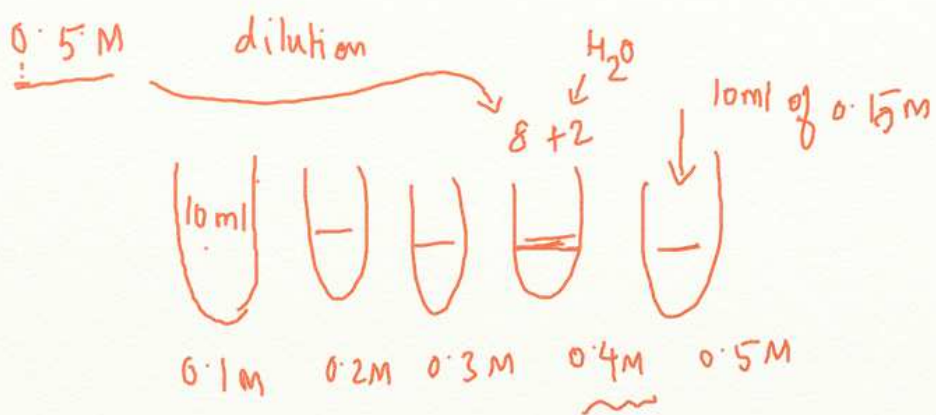 0.5 M dilution H₂O
8 + 2 10ml of 0.15M
10ml
0.1M 0.2M 0.3M 0.4M 0.5M